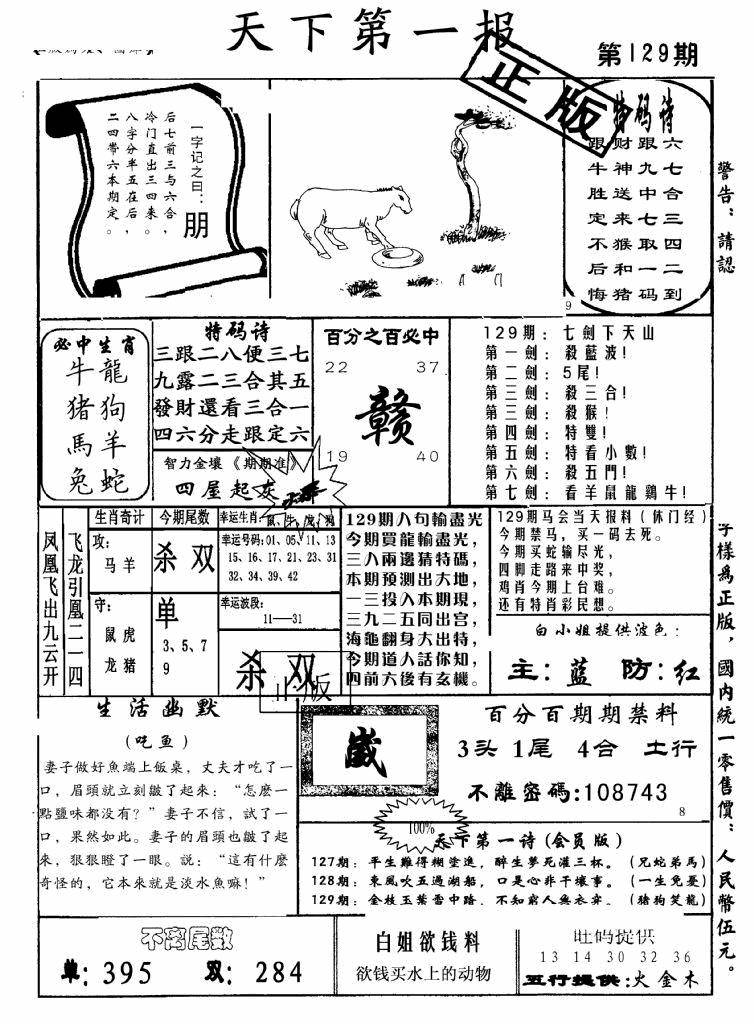 天下第一报
第129期
正版
一字记之曰：
朋
后七前三与六合，
冷门直出三四来。
八字分半五在后，
二四带六本期定。
特码诗
跟财跟六
牛神九七
胜送中合
定来七三
不猴取四
后和一二
悔猪码到
9
警告：請認
字樣為正版，國內統一零售價：人民幣伍元。
必中生肖
牛龍
猪狗
馬羊
兔蛇
特码诗
三跟二八便三七
九露二三合其五
發財還看三合一
四六分走跟定六
智力金壤《期期准》
四屋起灰
百分之百必中
22 37
赣
19 40
129期：七劍下天山
第一劍：殺藍波！
第二劍：5尾！
第三劍：殺三合！
第三劍：殺猴！
第四劍：特雙！
第五劍：特看小數！
第六劍：殺五門！
第七劍：看羊鼠龍鷄牛！
凤凰飞出九云开
飞龙引凰二一四
生肖奇计
攻：
马羊
守：
鼠虎
龙猪
今期尾数
杀双
单
3、5、7
9
幸运生肖：
鼠、牛、虎、狗
幸运号码：01、05、11、13
15、16、17、21、23、31
32、34、39、42
幸运波段：
11—31
杀双
正版
129期八句輸盡光
今期買龍輸盡光，
三八兩邊猜特碼，
本期預測出大地，
一三投入本期現，
三九二五同出宫，
海龜翻身大出特，
今期道人話你知，
四前六後有玄機。
129期马会当天报料（休门经）
今期禁马，买一码去死。
今期买蛇输尽光，
四脚走路来中奖，
鸡肖今期上台难。
还有特肖彩民想。
白小姐提供波色：
主：蓝 防：红
生活幽默
（吃鱼）
妻子做好魚端上飯桌，丈夫才吃了一
口，眉頭就立刻皺了起來：“怎麽一
點鹽味都没有？”妻子不信，試了一
口，果然如此。妻子的眉頭也皺了起
來，狠狠瞪了一眼。説：“這有什麽
奇怪的，它本來就是淡水魚嘛！”
百分百期期禁料
3头 1尾 4合 土行
不離密碼:108743
8
100%
天下第一诗(会员版)
127期：平生難得糊塗進，醉生夢死灌三杯。（兄蛇弟馬）
128期：東風吹五過湖船，口是心非干壞事。（一生免憂）
129期：金枝玉葉雷中路，不知窮人無衣穿。（猪狗笑龍）
不离尾数
单：395 双：284
白姐欲钱料
欲钱买水上的动物
旺码提供
13 14 30 32 36
五行提供：火金木